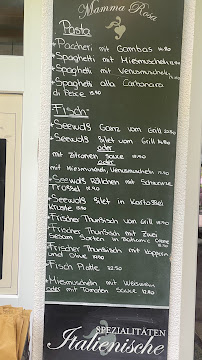 Mamma Rosa
Pasta
Pacheri mit Gambas
Spaghetti mit Miesmuscheln
Spaghetti mit Venusmuscheln
Spaghetti alla Carbonara
di Pesce
Fisch
Seewolf Ganz vom Grill
Seewolf Filet vom Grill
oder
mit Zitronen Sauce
oder
mit Miesmuscheln, Venusmuscheln
Seewolf Röllchen mit Schwarze
Trüffel
Seewolf Filet in Kartoffel
Kruste
Frischer Thunfisch vom Grill
Frischer Thunfisch mit Zwei
Sesam Sorten in Balsamic Creme
Frischer Thunfisch mit Kappern
und Olive
Fisch Platte
Miesmuscheln mit Weißwein
oder mit Tomaten Sauce
SPEZIALITÄTEN
Italienische